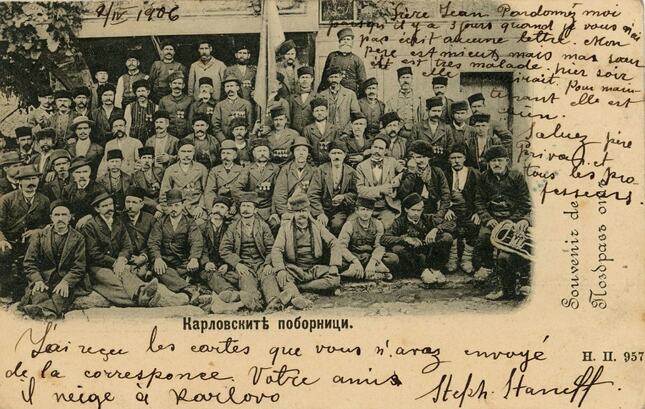 9/IV 1906
Frère Jean Pardonné moi
il y a 3 jours quand je vous n'ai
pas écrit aucune lettre. Mon
père est mieux, mais ma sœur
est très malade, hier soir
elle mourait. Pour main-
tenant elle est
bien.
Saluez père
Privat, et
tous les pro-
fesseurs.
Souvenir de
Поздравъ отъ
Карловскитѣ поборници.
Н. П. 957
J'ai reçu les cartes que vous m'avez envoyé
de la corresponce. Votre amis
il neige à Karlovo Steph. Staneff